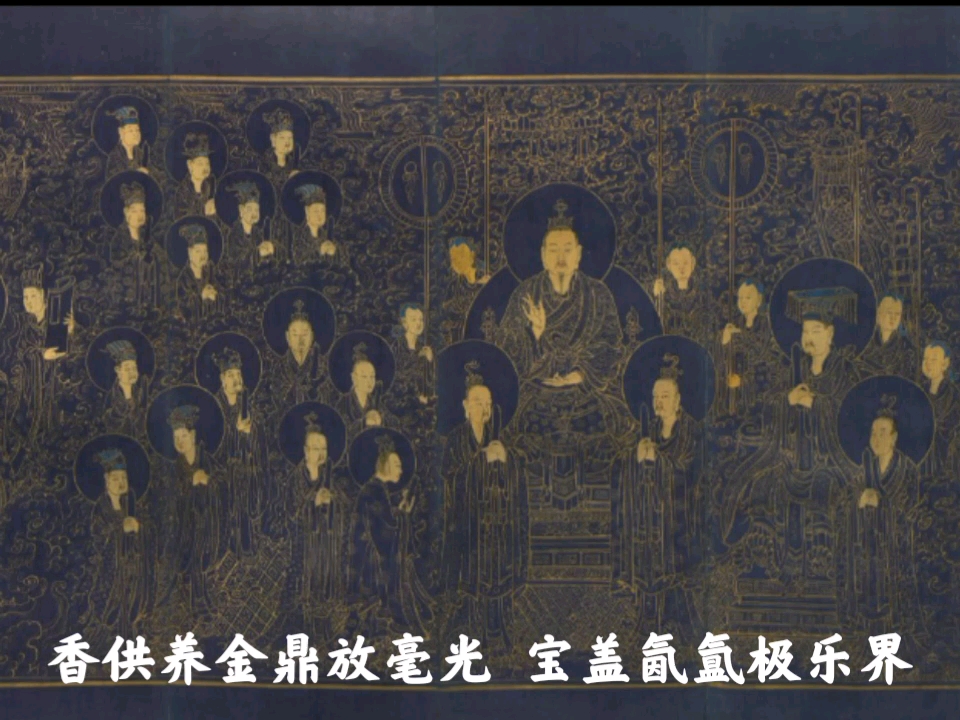 香供养金鼎放毫光 宝盖氤氲极乐界